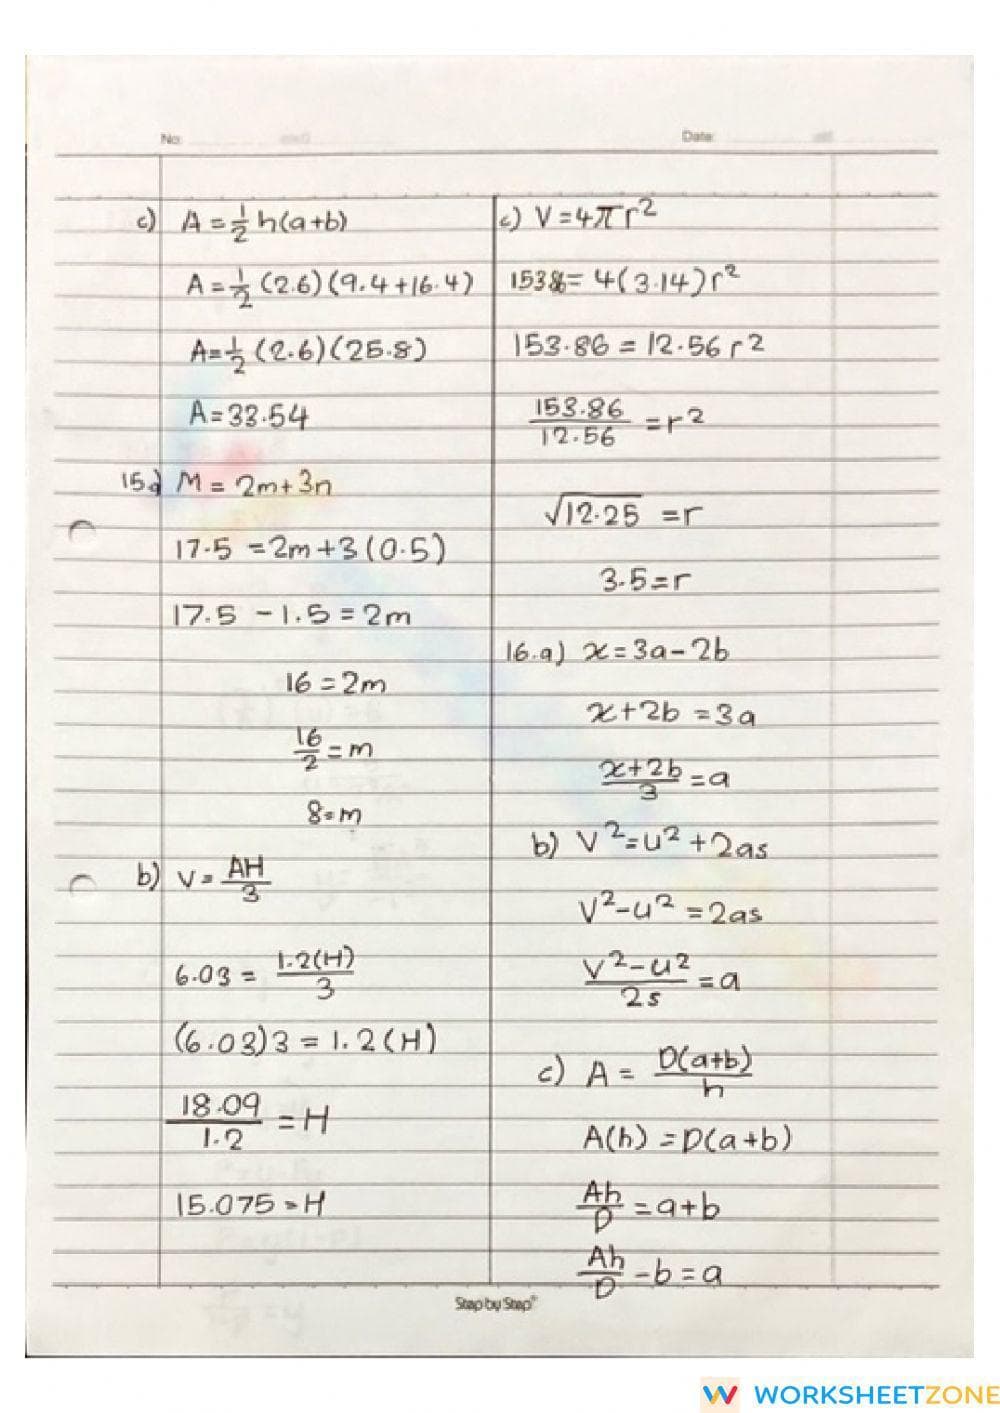 No:
Date:
c) A = 1/2 h(a+b)
A = 1/2 (2.6)(9.4+16.4)
A = 1/2 (2.6)(25.8)
A = 33.54
15a) M = 2m+3n
17.5 = 2m+3(0.5)
17.5 - 1.5 = 2m
16 = 2m
16/2 = m
8 = m
b) V = AH/3
6.03 = 1.2(H)/3
(6.03)3 = 1.2(H)
18.09/1.2 = H
15.075 = H
c) V = 4πr²
= 4(3.14)r²
153.86 = 12.56r²
153.86/12.56 = r²
√12.25 = r
3.5 = r
16.a) x = 3a-2b
x+2b = 3a
x+2b/3 = a
b) V² = u² + 2as
V²-u² = 2as
V²-u²/2s = a
c) A = D(a+b)/h
A(h) = D(a+b)
Ah/D = a+b
Ah/D - b = a
Step by Step
WORKSHEETZONE